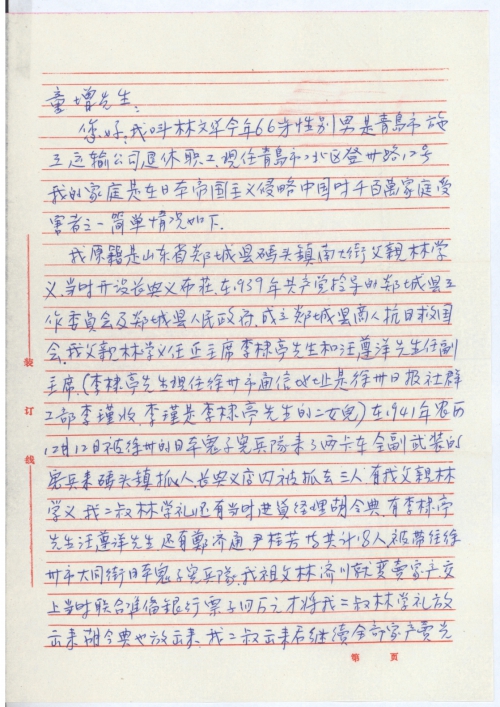 童增先生:
您好,我叫林文华今年66岁性别男是青島市施
工运输公司退休职工现住青島市北区登州路12号
我的家庭是在日本帝国主义侵略中国时千百萬家庭受
害者之一简单情况如下.
我原籍是山东省郯城县码头镇南大街父親林学
义,当时开设长典义布荘,在1939年共产党领导的郯城县工
作委員会及郯城县人民政府,成立郯城县商人抗日救国
会,我父親林学义任正主席李棣亭先生和汪尊洋先生任副
主席.(李棣亭先生現住徐州市通信地址是徐州日报社群
工部李瑾收.李瑾是李棣亭先生的二女兒)在1941年农历
12月12日被徐州的日本鬼子宪兵隊来了两卡车全副武装的
宪兵来码头镇抓人,长典义店内被抓去三人,有我父親林
学义.我二叔林学礼,还有当时进貨经理胡今典.有李棣亭
先生汪尊洋先生.还有鄭济通,尹桂芳等共计18人.被带往徐
州市大同街日本鬼子宪兵隊.我祖父林济川就变卖家产交
上当时联合准俻銀行票子四万元才将我二叔林学礼放
出来胡今典也放出来.我二叔出来后继续全部家产賣光
装
订
线
第 页